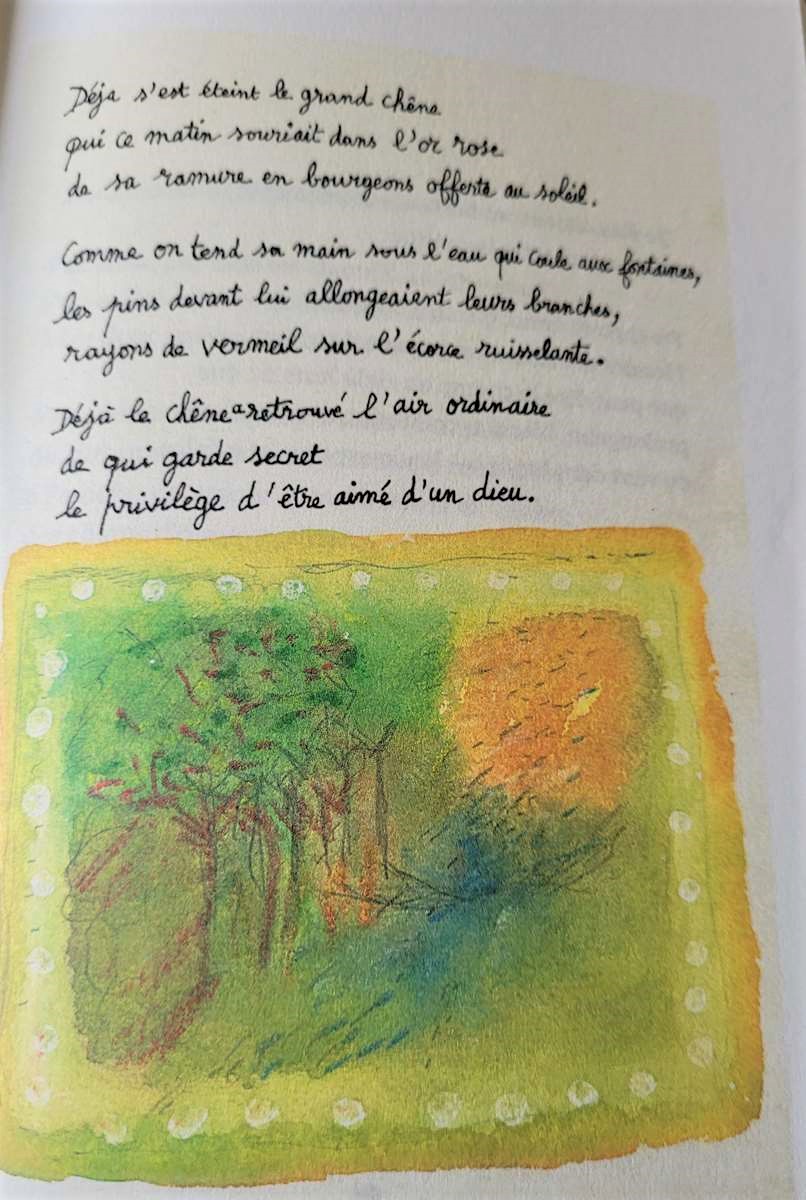 Déja s'est éteint le grand chêne
qui ce matin souriait dans l'or rose
de sa ramure en bourgeons offerte au soleil.
Comme on tend sa main sous l'eau qui coule aux fontaines,
les pins devant lui allongeaient leurs branches,
rayons de vermeil sur l'écorce ruisselante.
Déjà le chêne a retrouvé l'air ordinaire
de qui garde secret
le privilège d'être aimé d'un dieu.